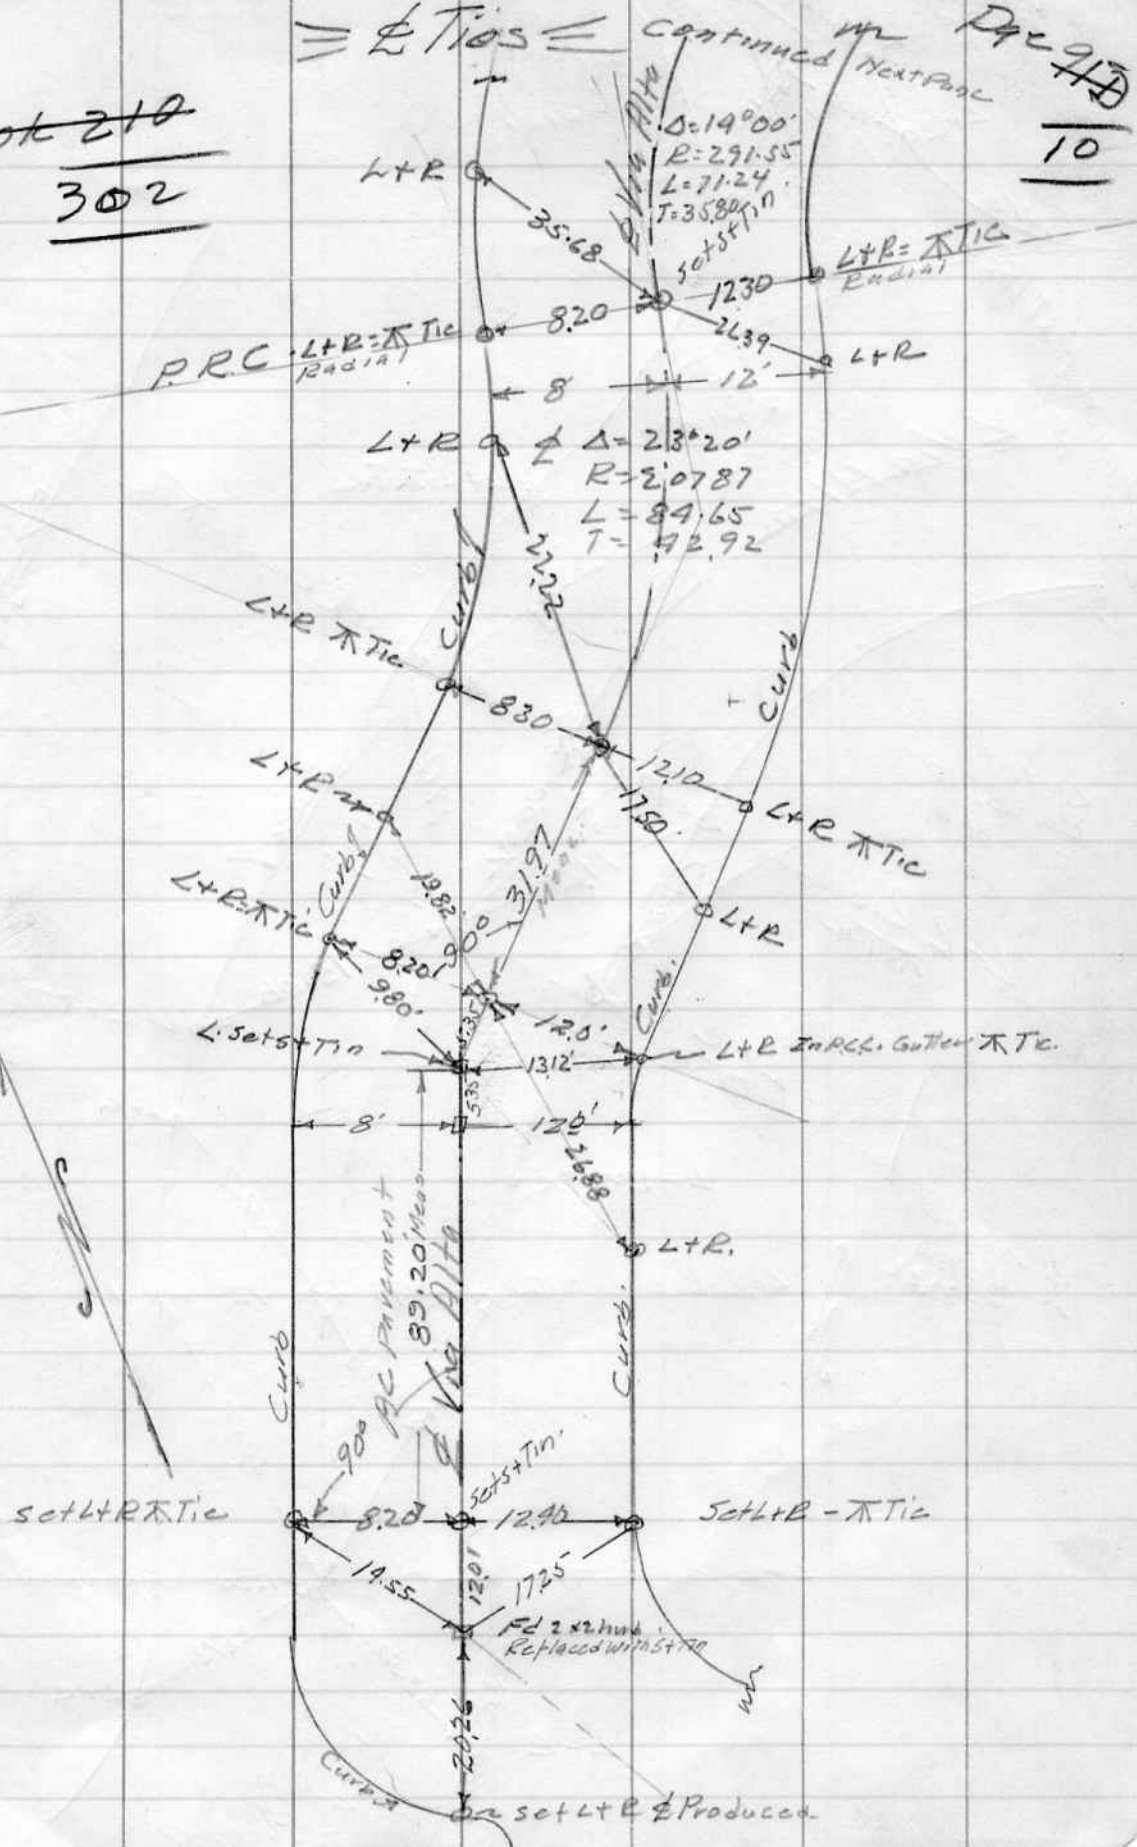 ℄ Ties
Continued
Next Page
Page 91D
10
ok 210
302
℄ Via Alta
Δ=14°00'
R=291.55
L=71.24
T=35.80
L+R
35.68
set s+Tin
L+R= ⊼ Tie
Radial
12.30
8.20
P.R.C. L+R= ⊼ Tie
Radial
L+R
8'
12'
L+R
℄ Δ=23°20'
R=207.87
L=84.65
T=42.92
22.22
Curb
L+R ⊼ Tie
8.30
Curb
12.10
L+R
17.50
L+R ⊼ Tie
Curb
31.97
Meas.
19.82
L+R= ⊼ Tie
L+R
90°
8.20'
9.80'
5.35
12.0'
Curb.
L. set s+Tin
13.12'
L+R In P.C.C. Gutter ⊼ Tie.
5.35
8'
12.0'
26.88
AC Pavement
89.20 Meas
℄ Via Alta
L+R.
Curb
Curb.
90°
set s+Tin.
set L+R ⊼ Tie
8.20
12.40
Set L+R - ⊼ Tie
14.55
12.01
17.25
Fd 2x2 hub
Replaced with s+Tin
20.26
Curb
set L+R ℄ Produced